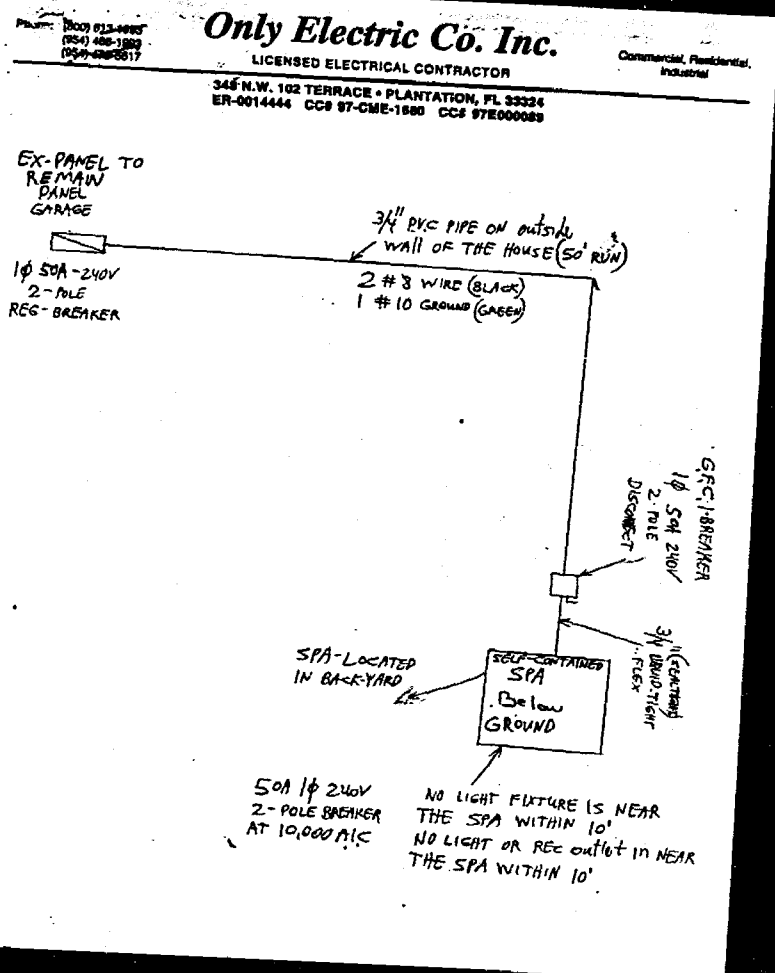 Only Electric Co. Inc.
LICENSED ELECTRICAL CONTRACTOR
Commercial, Residential,
Industrial
N.W. 102 TERRACE • PLANTATION, FL 33324
ER-0014444 CC# 97-CME-1580 CC# 97E000089
EX-PANEL TO
REMAIN
PANEL
GARAGE
1ϕ 50A-240V
2-POLE
REG-BREAKER
3/4" PVC PIPE ON outside
WALL OF THE HOUSE (50' RUN)
2 #8 WIRE (BLACK)
1 #10 GROUND (GREEN)
G.F.C.I-BREAKER
1ϕ 50A 240V
2-POLE
DISCONNECT
3/4" (SEALTIGHT)
LIQUID-TIGHT
FLEX
SELF-CONTAINED
SPA
Below
GROUND
SPA-LOCATED
IN BACK-YARD
50A 1ϕ 240V
2-POLE BREAKER
AT 10,000 AIC
NO LIGHT FIXTURE IS NEAR
THE SPA WITHIN 10'
NO LIGHT OR REC outlet in NEAR
THE SPA WITHIN 10'